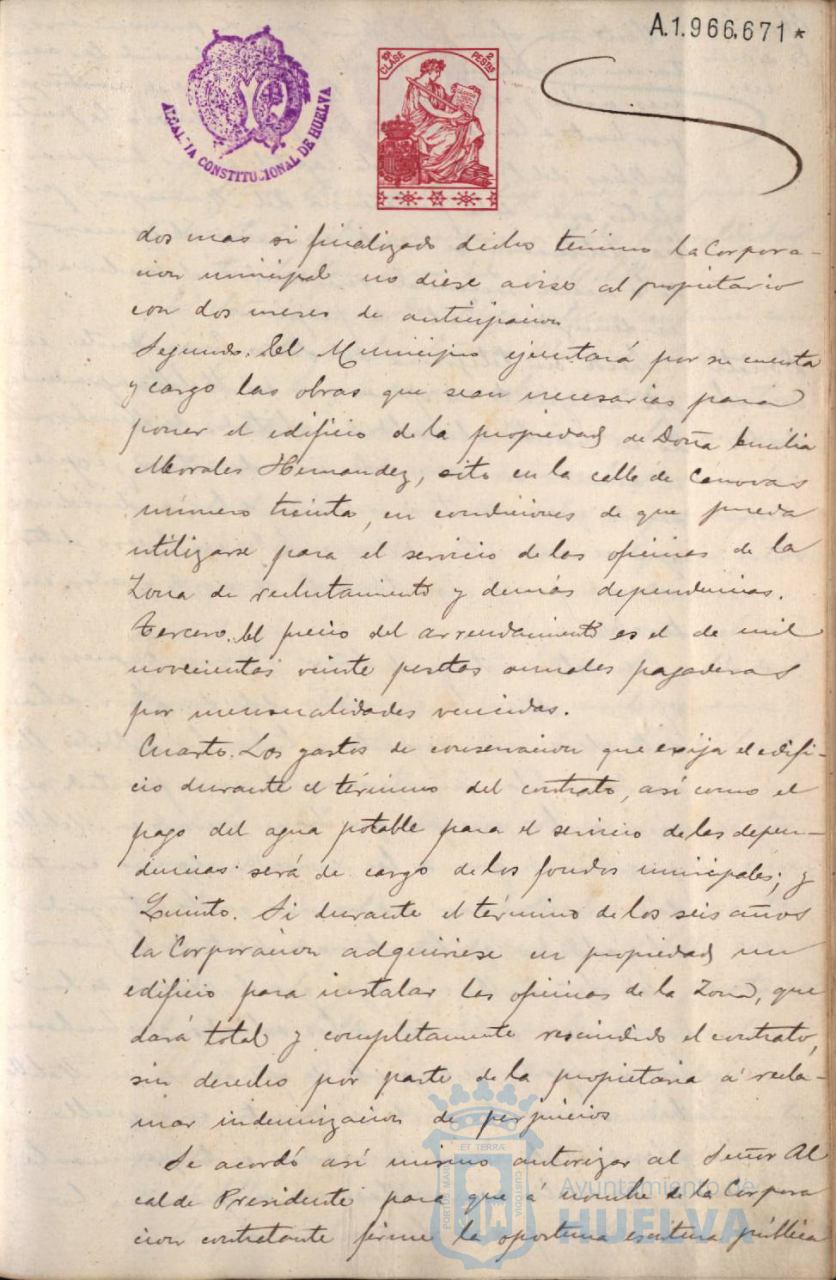 A.1.966.671*
10ª CLASE
2 PESETAS
ALCALDIA CONSTITUCIONAL DE HUELVA
dos mas si finalizado dicho término la Corpora-
cion municipal no diese aviso al propietario
con dos meses de anticipacion
Segundo. El Municipio ejecutará por su cuenta
y cargo las obras que sean necesarias para
poner el edificio de la propiedad de Doña Emilia
Morales Hernandez, sito en la calle de Cánovas
número treinta, en condiciones de que pueda
utilizarse para el servicio de las oficinas de la
Zona de reclutamiento y demás dependencias.
Tercero. El precio del arrendamiento es el de mil
novecientas veinte pesetas anuales pagaderas
por mensualidades vencidas.
Cuarto. Los gastos de conservacion que exija el edifi-
cio durante el término del contrato, así como el
pago del agua potable para el servicio de las depen-
dencias será de cargo de los fondos municipales; y
Quinto. Si durante el término de los seis años
la Corporacion adquiriese en propiedad un
edificio para instalar las oficinas de la Zona, que
dará total y completamente rescindido el contrato,
sin derecho por parte de la propietaria á recla-
mar indemnizacion de perjuicios
Se acordó así mismo autorizar al Señor Al
calde Presidente para que á nombre de la Corpora
cion contratante firme la oportuna escritura pública
PORTUS MARIS ET TERRAE CUSTODIA
Ayuntamiento de
HUELVA